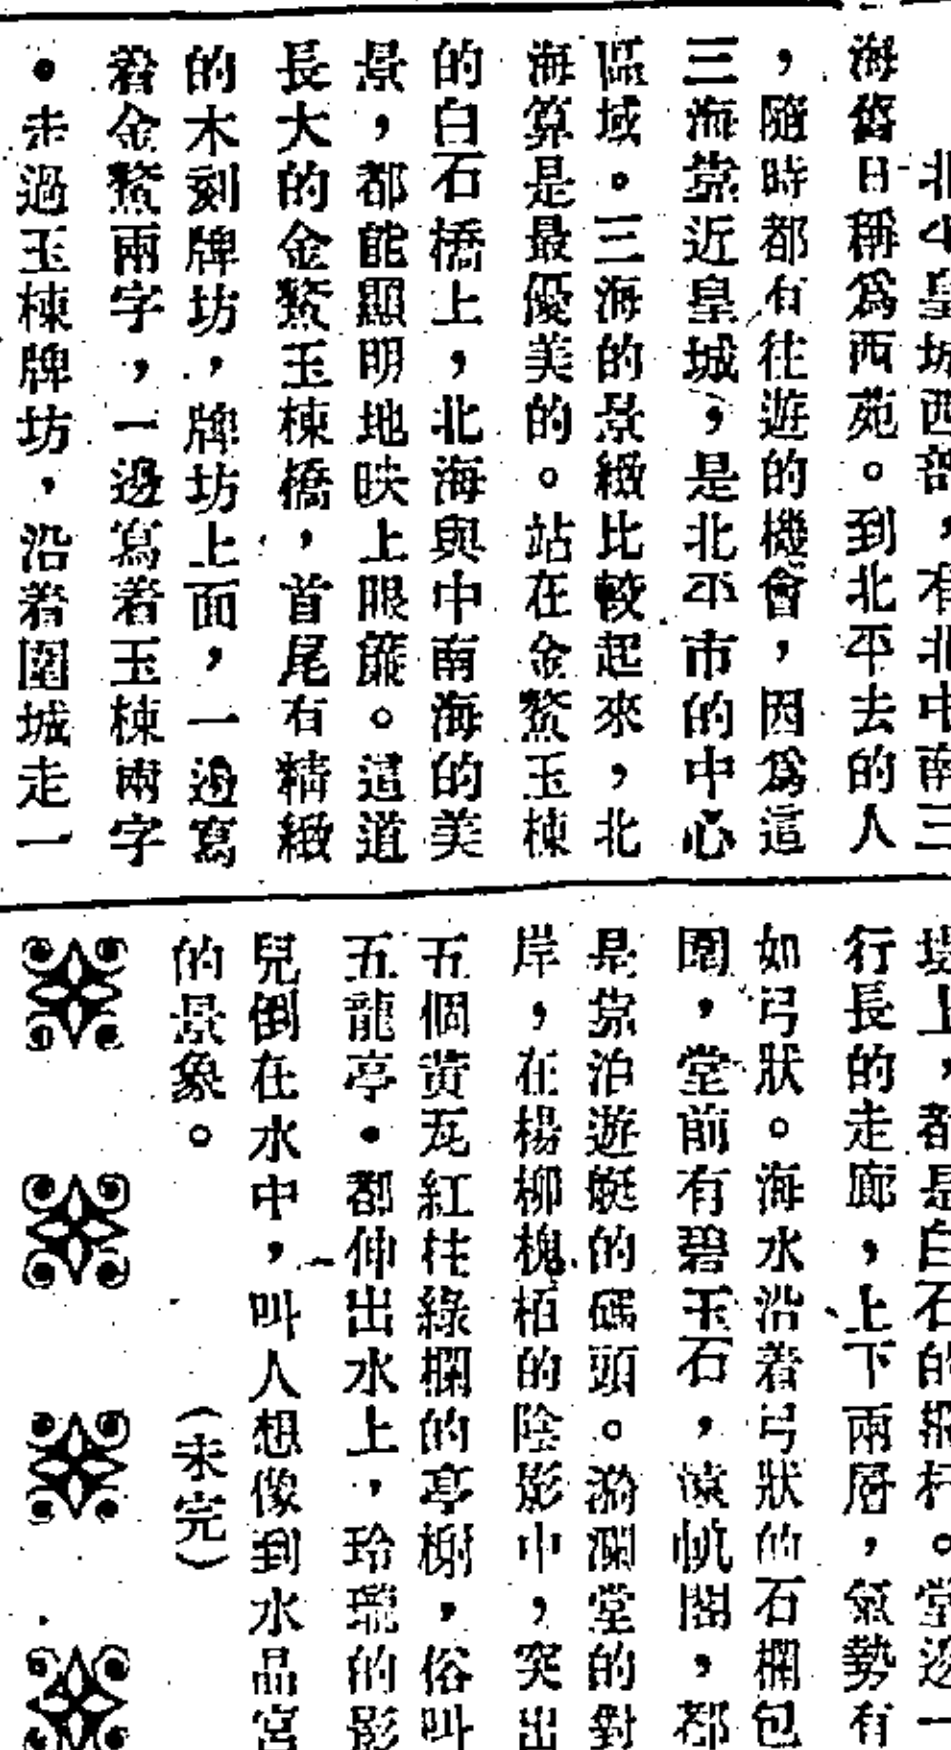 北平皇城西部，有北中南三
海舊日稱爲西苑。到北平去的人
，隨時都有往遊的機會，因爲這
三海靠近皇城，是北平市的中心
區域。三海的景緻比較起來，北
海算是最優美的。站在金鰲玉棟
的白石橋上，北海與中南海的美
景，都能顯明地映上眼簾。這道
長大的金鰲玉棟橋，首尾有精緻
的木刻牌坊，牌坊上面，一邊寫
着金鰲兩字，一邊寫着玉棟兩字
。走過玉棟牌坊，沿着圍城走一
堤上，都是白石的欄杆。堂邊一
行長的走廊，上下兩層，氣勢有
如弓狀。海水沿着弓狀的石欄包
圍，堂前有碧玉石，遠帆閣，都
是靠泊遊艇的碼頭。漪瀾堂的對
岸，在楊柳槐柏的陰影中，突出
五個黃瓦紅柱綠欄的亭榭，俗叫
五龍亭。都伸出水上，玲瓏的影
兒倒在水中，叫人想像到水晶宮
的景象。（未完）